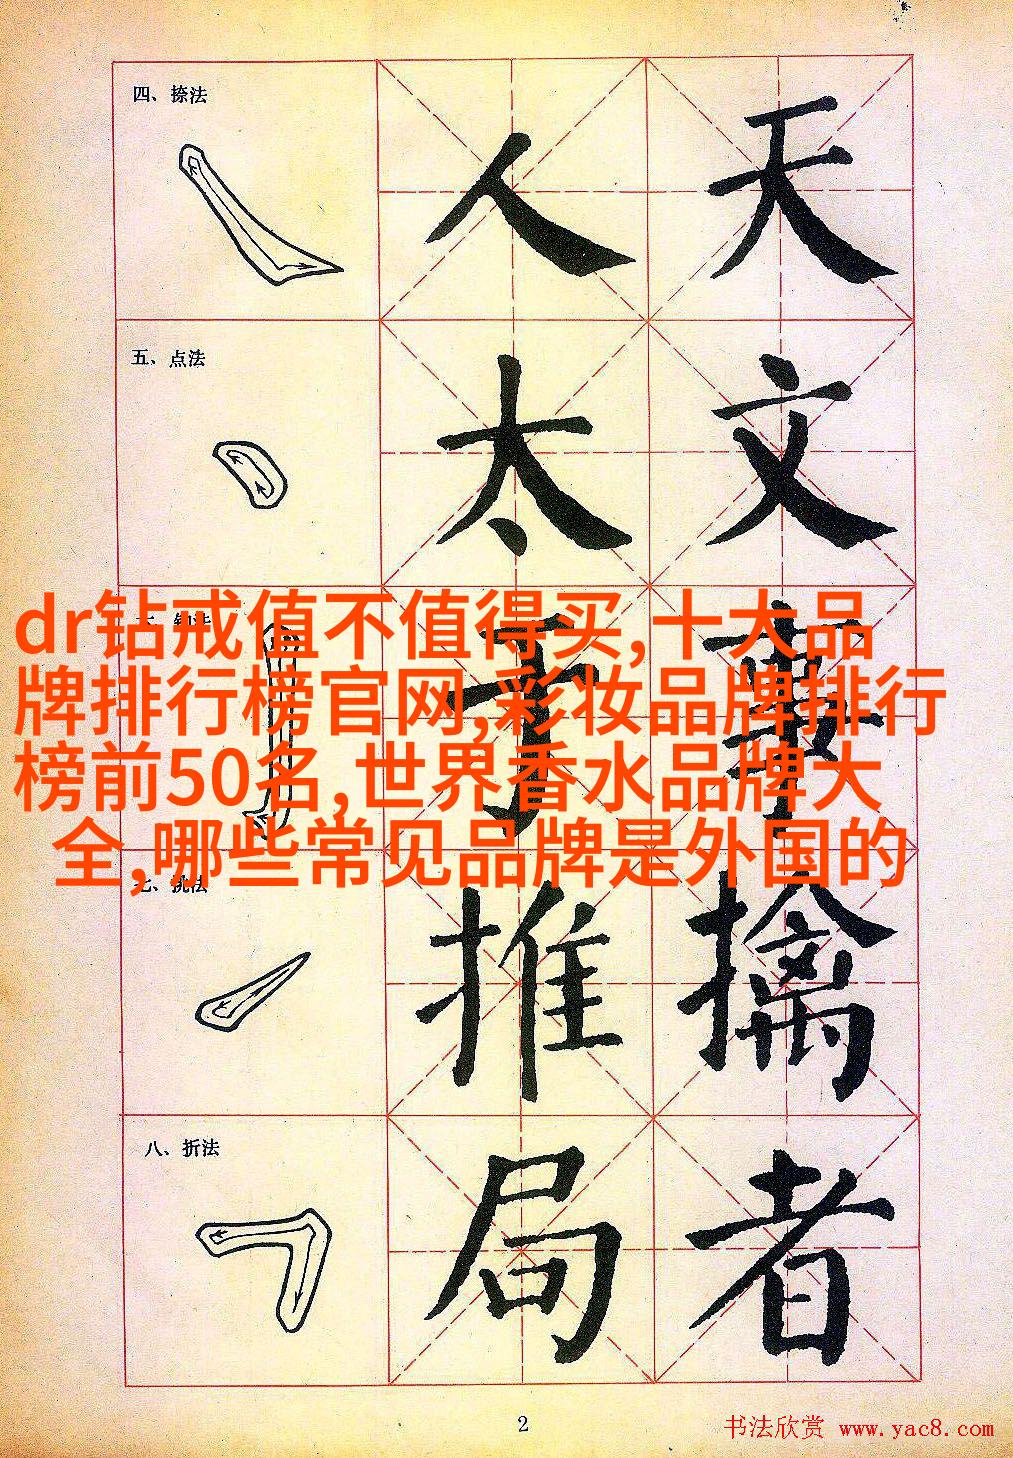 四、捺法
人 天
五、点法
太 文
dr钻戒值不值得买,十大品
牌排行榜官网,彩妆品牌排行
榜前50名,世界香水品牌大
全,哪些常见品牌是外国的
于 事
七、挑法
推 擒
八、折法
局 者
2
书法欣赏 www.yac8.com